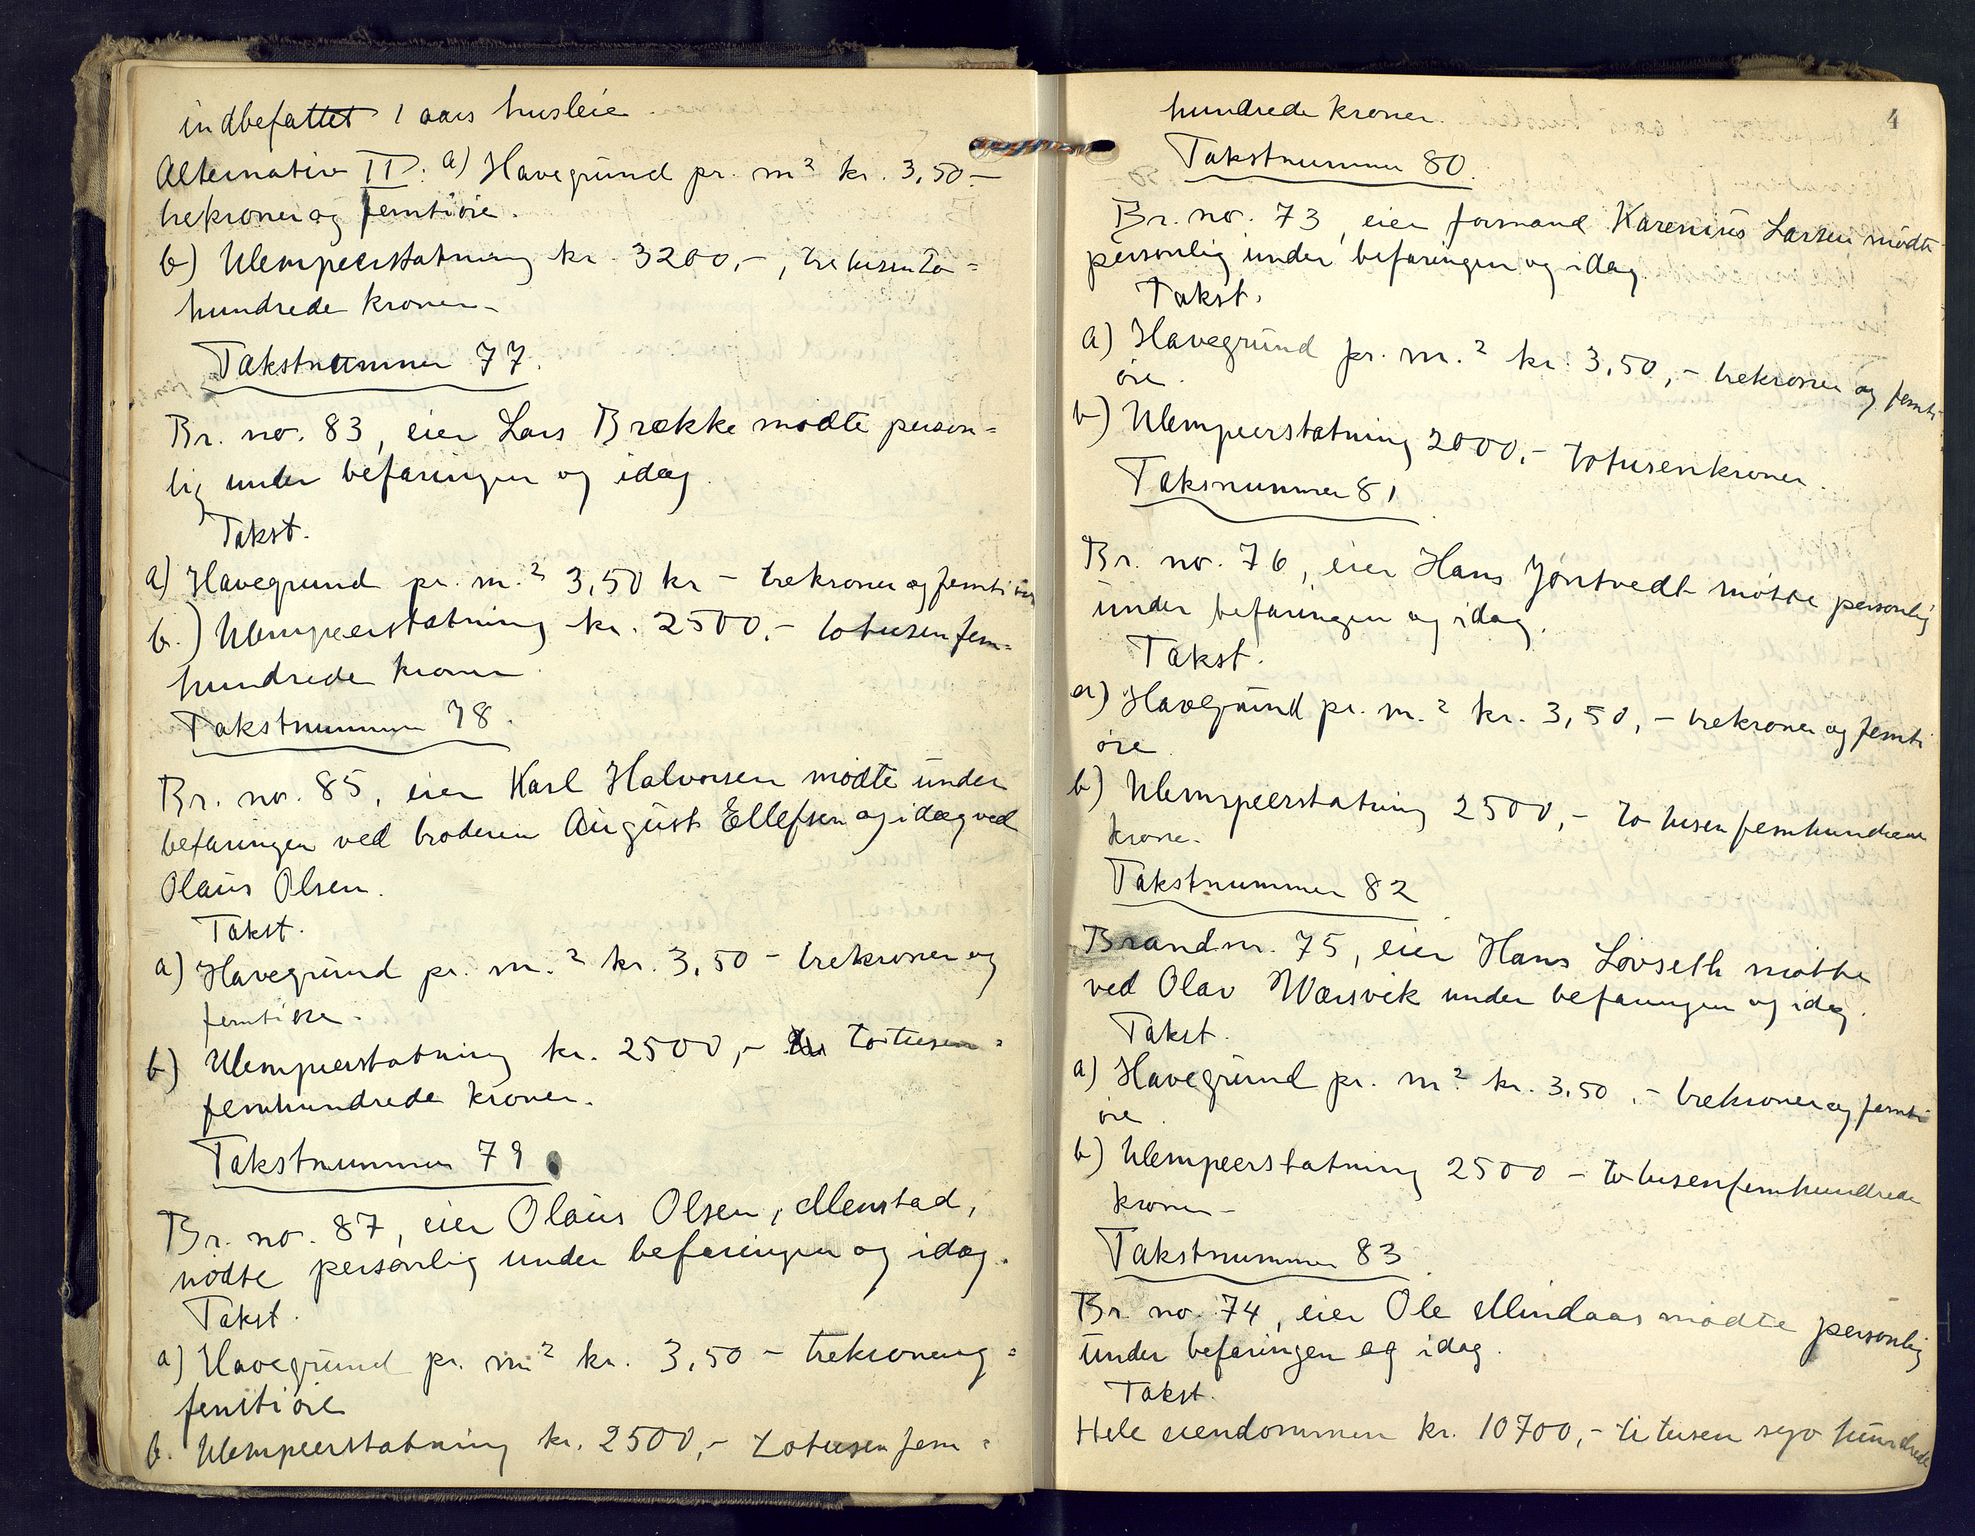 indbefattet 1 aars husleie.
Alternativ II. a) Havegrund pr. m² kr. 3,50.-
trekroner og femtiøre.
b) Ulempeerstatning kr. 3200,-, tretusento=
hundrede kroner-
Takstnummer 77.
Br. no. 83, eier Lars Brække mødte person=
lig under befaringen og idag.
Takst.
a) Havegrund pr. m.² 3,50 kr - trekroner og femtiøre
b.) Ulempeerstatning kr. 2500,- totusenfem=
hundrede kroner.
Takstnummer 78.
Br. no. 85, eier Karl Halvorsen mødte under
befaringen ved broderen August Ellefsen og idag ved
Olaus Olsen.
Takst.
a) Havegrund pr. m.² kr. 3,50 - trekroner og
femtiøre.
b) Ulempeerstatning kr. 2500,- totusen=
femhundrede kroner.
Takstnummer 79.
Br. no. 87, eier Olaus Olsen, Menstad,
mødte personlig under befaringen og idag.
Takst.
a) Havegrund pr. m² kr. 3,50 - trekroner og=
femtiøre
b. Ulempeerstatning kr. 2500,- totusenfem=
4
hundrede kroner.
Takstnummer 80.
Br. no. 73, eier formand Karenius Larsen mødte
personlig under befaringen og idag.
Takst.
a) Havegrund pr. m.² kr. 3,50,- trekroner og femti
øre.
b) Ulempeerstatning 2000,- totusenkroner.
Taksnummer 81
Br. no. 76, eier Hans Jøntvedt møtte personlig
under befaringen og idag.
Takst.
a) Havegrund pr. m.² kr. 3,50,- trekroner og femti
øre.
b) Ulempeerstatning 2500,- totusenfemhundrede
krone.
Takstnummer 82
Brandnr. 75, eier Hans Løvseth møtte
ved Olav Wærsvik under befaringen og idag.
Takst.
a) Havegrund pr. m² kr. 3,50,- trekroner og femti
øre.
b) Ulempeerstatning 2500 - totusenfemhundrede
kroner-
Takstnummer 83.
Br. no. 74, eier Ole Mindaas mødte personlig
under befaringen og idag.
Takst.
Hele eiendommen kr. 10700,- titusen syv hundrede